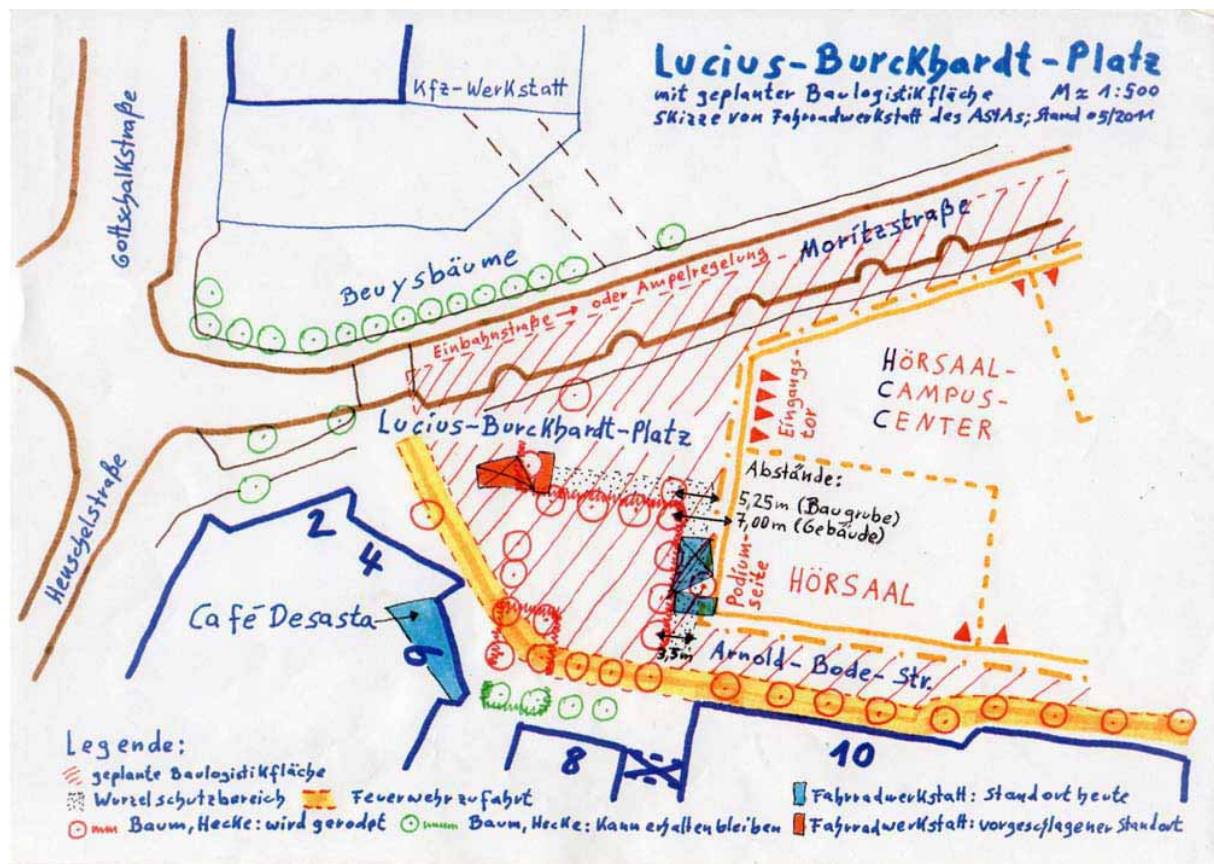 Lucius-Burckhardt-Platz
mit geplanter Baulogistikfläche M≈ 1:500
Skizze von Fahrradwerkstatt des AStAs; Stand 05/2011
Kfz-Werkstatt
Gottschalkstraße
Beuysbäume
Moritzstraße
Einbahnstraße → oder Ampelregelung
HÖRSAAL-
CAMPUS-
CENTER
Eingangs-
tor
Lucius-Burckhardt-Platz
Abstände:
5,25m (Baugrube)
7,00m (Gebäude)
Henschelstraße
2
4
Podium-
seite
HÖRSAAL
Café Desasta
6
3,5m
Arnold-Bode-Str.
8
10
Legende:
geplante Baulogistikfläche
Wurzelschutzbereich
Feuerwehrzufahrt
Baum, Hecke: wird gerodet
Baum, Hecke: Kann erhalten bleiben
Fahrradwerkstatt: Standort heute
Fahrradwerkstatt: vorgeschlagener Standort